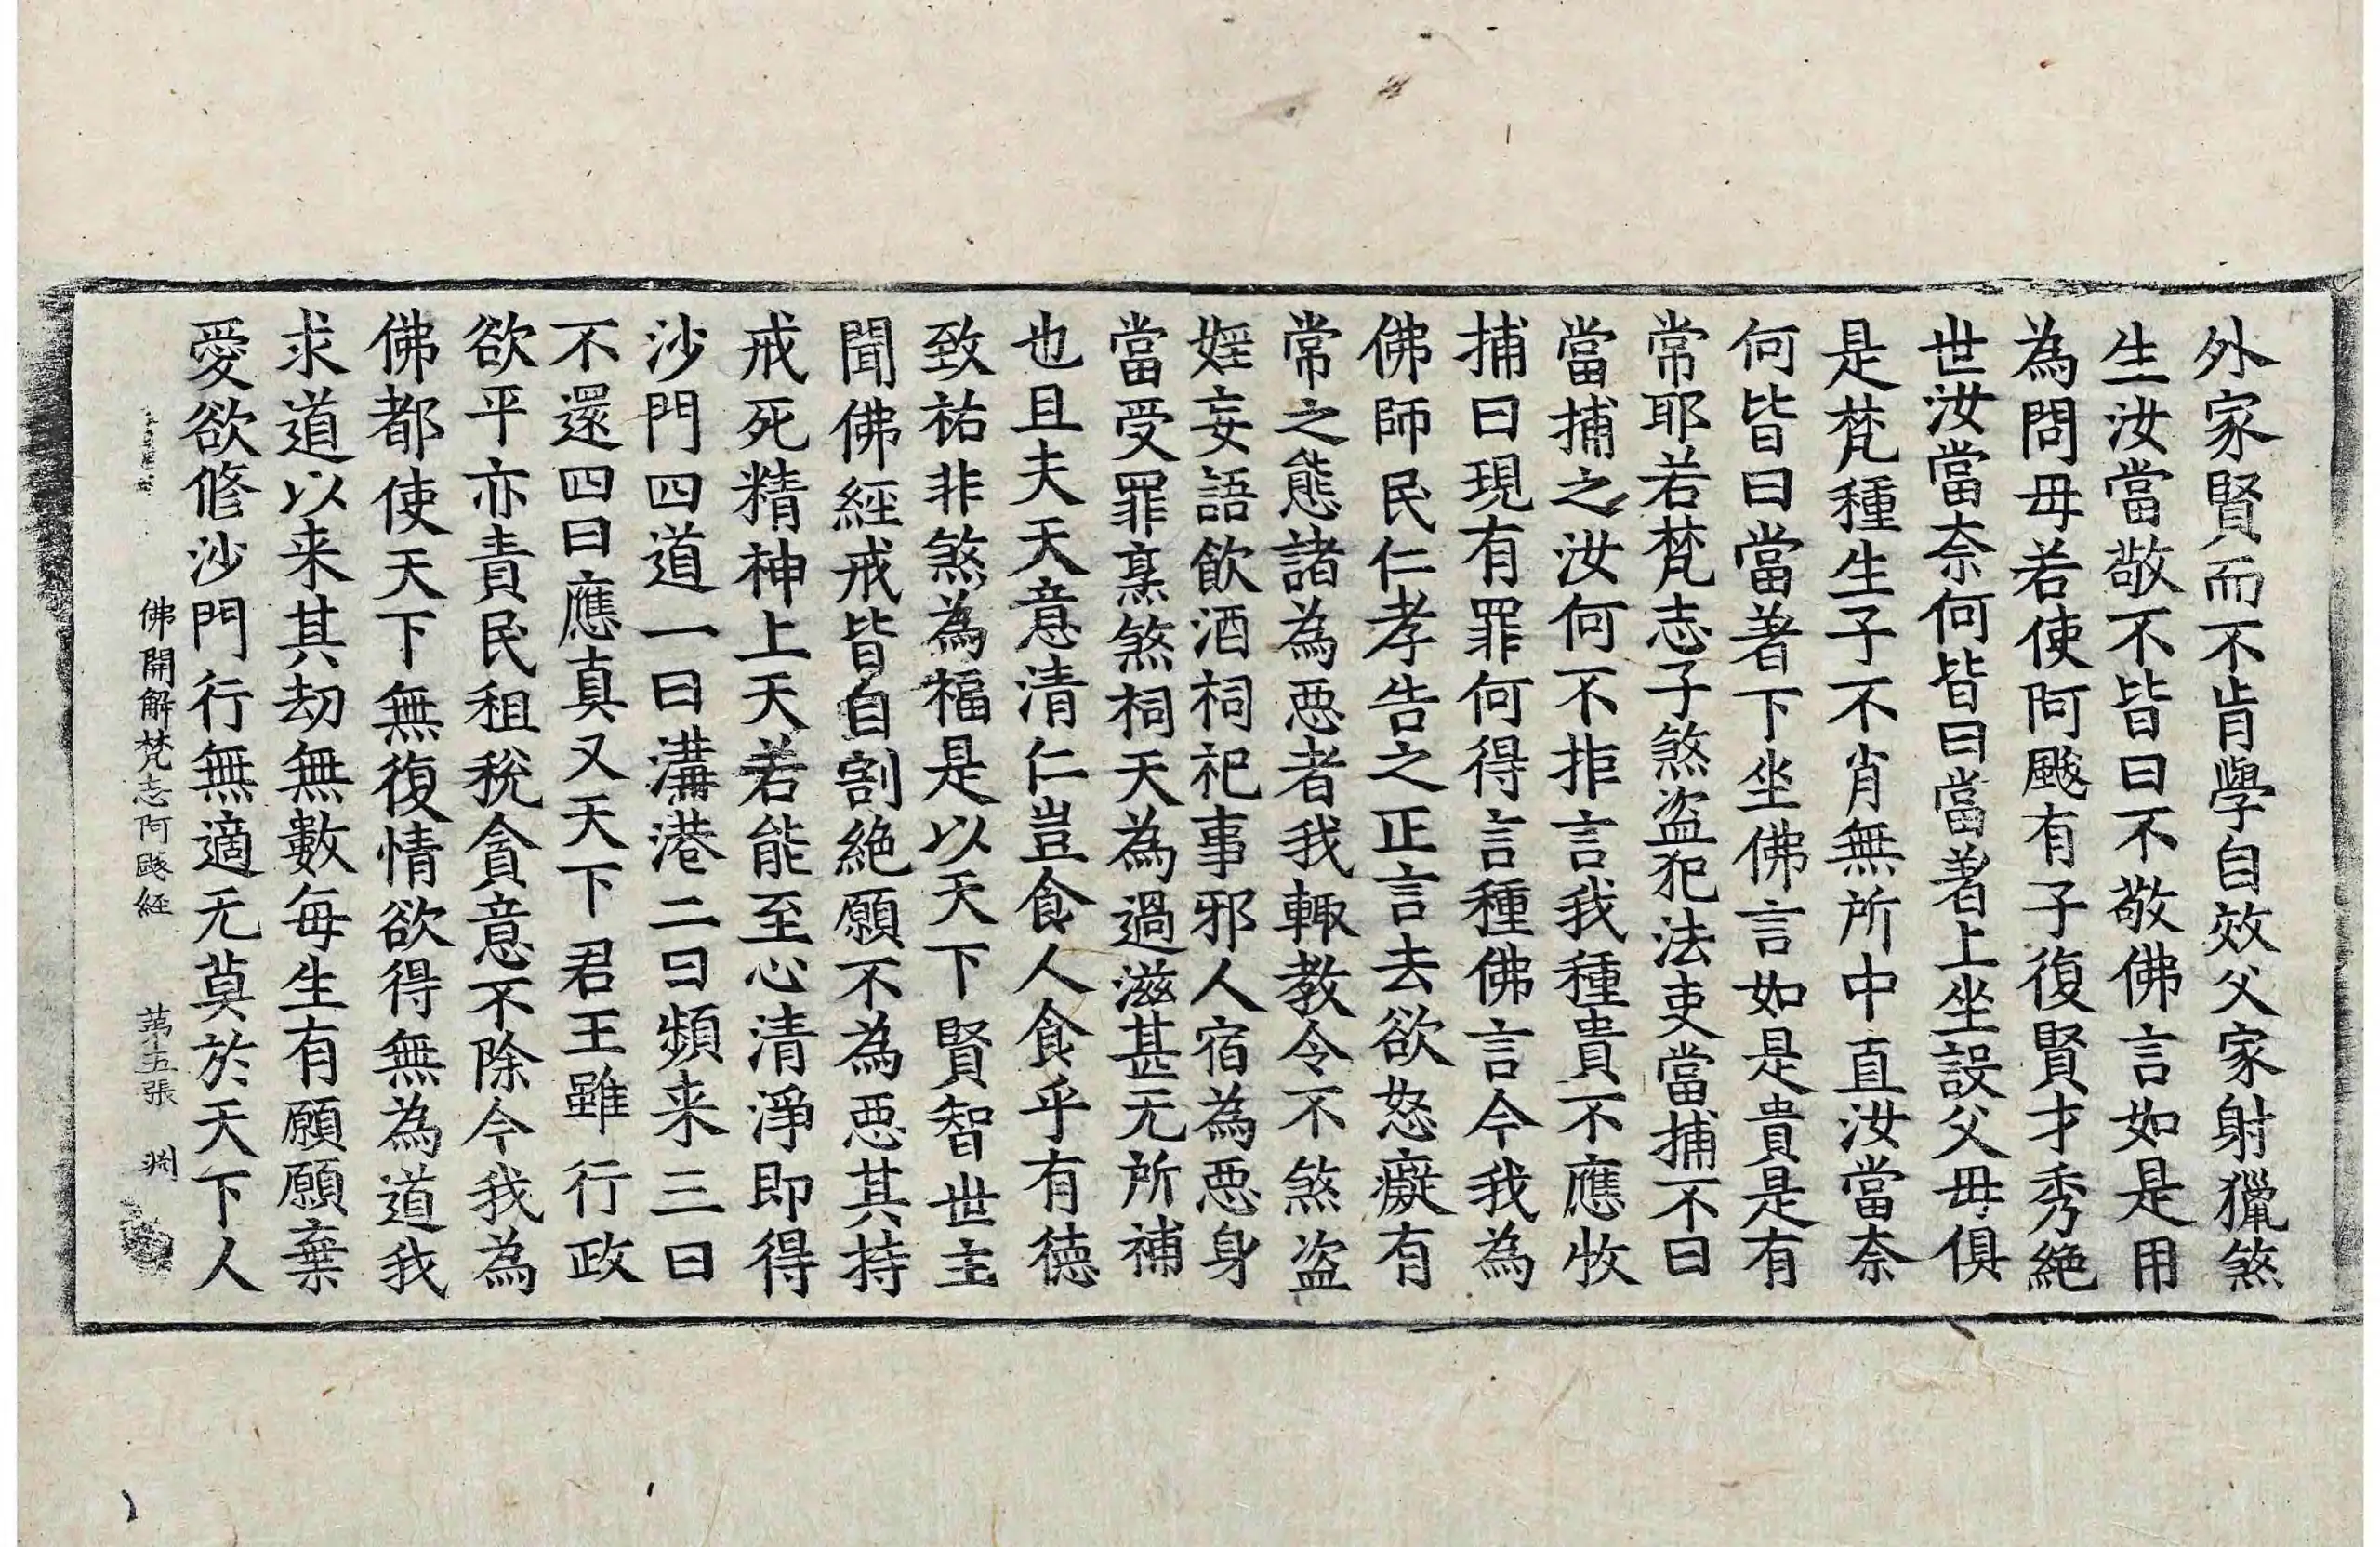 外家賢而不肯學自效父家射獵煞
生汝當敬不皆曰不敬佛言如是用
為問毋若使阿颰有子復賢才秀絶
世汝當奈何皆曰當著上坐設父毋俱
是梵種生子不肖無所中直汝當奈
何皆曰當著下坐佛言如是貴是有
常耶若梵志子煞盗犯法吏當捕不曰
當捕之汝何不拒言我種貴不應收
捕曰現有罪何得言種佛言今我為
佛師民仁孝告之正言去欲怒癡有
常之態諸為惡者我輙教令不煞盗
婬妄語飲酒祠祀事邪人宿為惡身
當受罪烹煞祠天為過滋甚无所補
也且夫天意清仁豈食人食乎有徳
致祐非煞為福是以天下賢智世主
聞佛經戒皆自割絶願不為惡其持
戒死精神上天若能至心清淨即得
沙門四道一曰溝港二曰頻来三曰
不還四曰應真又天下君王雖行政
欲平亦責民租稅貪意不除今我為
佛都使天下無復情欲得無為道我
求道以来其劫無數每生有願願棄
愛欲修沙門行無適无莫於天下人
佛開解梵志阿颰経 苐五張 渕